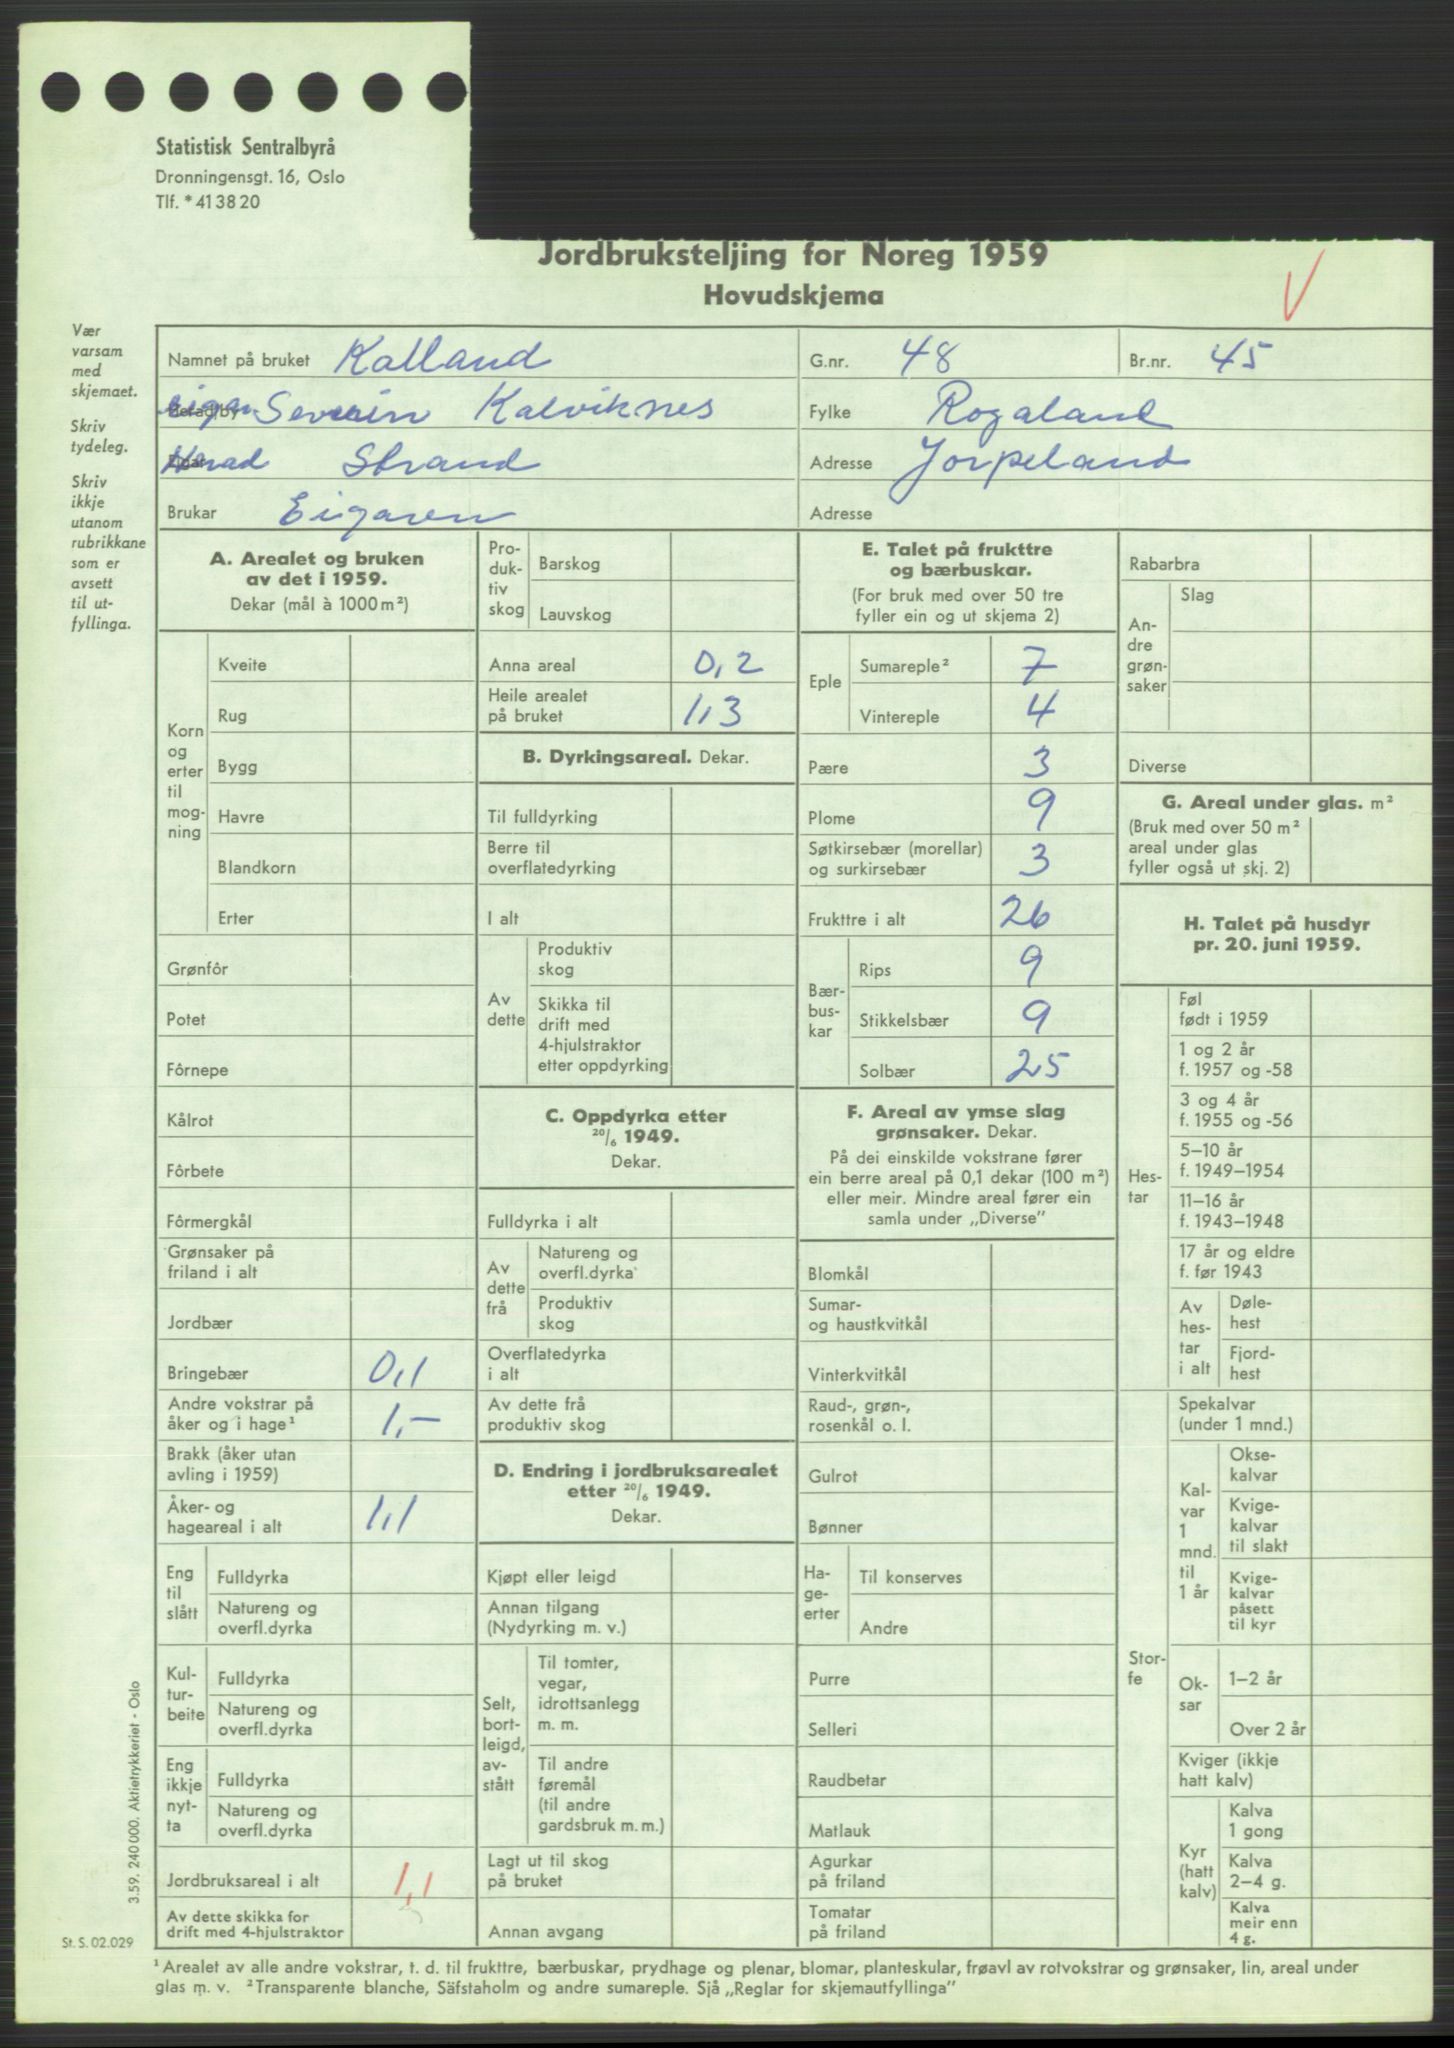 Statistisk Sentralbyrå
Dronningensgt. 16, Oslo
Tlf. * 41 38 20
Jordbruksteljing for Noreg 1959
Hovudskjema
Vær
varsam
med
skjemaet.
Skriv
tydeleg.
Skriv
ikkje
utanom
rubrikkane
som er
avsett
til ut-
fyllinga.
Namnet på bruket Kalland
G.nr. 48
Br.nr. 45
Herad/by Eigar Severin Kalviknes
Fylke Rogaland
Eigar Herad Strand
Adresse Jorpeland
Brukar Eigaren
Adresse
A. Arealet og bruken
av det i 1959.
Dekar (mål à 1000 m²)
Korn
og
erter
til
mog-
ning
Kveite
Rug
Bygg
Havre
Blandkorn
Erter
Grønfôr
Potet
Fôrnepe
Kålrot
Fôrbete
Fôrmergkål
Grønsaker på
friland i alt
Jordbær
Bringebær 0,1
Andre vokstrar på
åker og i hage¹ 1,-
Brakk (åker utan
avling i 1959)
Åker- og
hageareal i alt 1,1
Eng
til
slått
Fulldyrka
Natureng og
overfl.dyrka
Kul-
tur-
beite
Fulldyrka
Natureng og
overfl.dyrka
Eng
ikkje
nyt-
ta
Fulldyrka
Natureng og
overfl.dyrka
Jordbruksareal i alt 1,1
Av dette skikka for
drift med 4-hjulstraktor
Pro-
duk-
tiv
skog
Barskog
Lauvskog
Anna areal 0,2
Heile arealet
på bruket 1,3
B. Dyrkingsareal. Dekar.
Til fulldyrking
Berre til
overflatedyrking
I alt
Av
dette
Produktiv
skog
Skikka til
drift med
4-hjulstraktor
etter oppdyrking
C. Oppdyrka etter
20/6 1949.
Dekar.
Fulldyrka i alt
Av
dette
frå
Natureng og
overfl.dyrka
Produktiv
skog
Overflatedyrka
i alt
Av dette frå
produktiv skog
D. Endring i jordbruksarealet
etter 20/6 1949.
Dekar.
Kjøpt eller leigd
Annan tilgang
(Nydyrking m. v.)
Selt,
bort-
leigd,
av-
stått
Til tomter,
vegar,
idrottsanlegg
m. m.
Til andre
føremål
(til andre
gardsbruk m. m.)
Lagt ut til skog
på bruket
Annan avgang
E. Talet på frukttre
og bærbuskar.
(For bruk med over 50 tre
fyller ein og ut skjema 2)
Eple
Sumareple² 7
Vintereple 4
Pære 3
Plome 9
Søtkirsebær (morellar)
og surkirsebær 3
Frukttre i alt 26
Bær-
bus-
kar
Rips 9
Stikkelsbær 9
Solbær 25
F. Areal av ymse slag
grønsaker. Dekar.
På dei einskilde vokstrane fører
ein berre areal på 0,1 dekar (100 m²)
eller meir. Mindre areal fører ein
samla under „Diverse”
Blomkål
Sumar-
og haustkvitkål
Vinterkvitkål
Raud-, grøn-,
rosenkål o. l.
Gulrot
Bønner
Ha-
ge-
erter
Til konserves
Andre
Purre
Selleri
Raudbetar
Matlauk
Agurkar
på friland
Tomatar
på friland
Rabarbra
An-
dre
grøn-
saker
Slag
Diverse
G. Areal under glas. m²
(Bruk med over 50 m²
areal under glas
fyller også ut skj. 2)
H. Talet på husdyr
pr. 20. juni 1959.
Hes-
tar
Føl
født i 1959
1 og 2 år
f. 1957 og -58
3 og 4 år
f. 1955 og -56
5–10 år
f. 1949–1954
11–16 år
f. 1943–1948
17 år og eldre
f. før 1943
Av
hes-
tar
i alt
Døle-
hest
Fjord-
hest
Stor-
fe
Spekalvar
(under 1 mnd.)
Kal-
var
1
mnd.
til
1 år
Okse-
kalvar
Kvige-
kalvar
til slakt
Kvige-
kalvar
påsett
til kyr
Ok-
sar
1–2 år
Over 2 år
Kviger (ikkje
hatt kalv)
Kyr
(hatt
kalv)
Kalva
1 gong
Kalva
2–4 g.
Kalva
meir enn
4 g.
3.59. 240 000. Aktietrykkeriet - Oslo
St. S. 02.029
¹ Arealet av alle andre vokstrar, t. d. til frukttre, bærbuskar, prydhage og plenar, blomar, planteskular, frøavl av rotvokstrar og grønsaker, lin, areal under
glas m. v. ² Transparente blanche, Säfstaholm og andre sumareple. Sjå „Reglar for skjemautfyllinga”